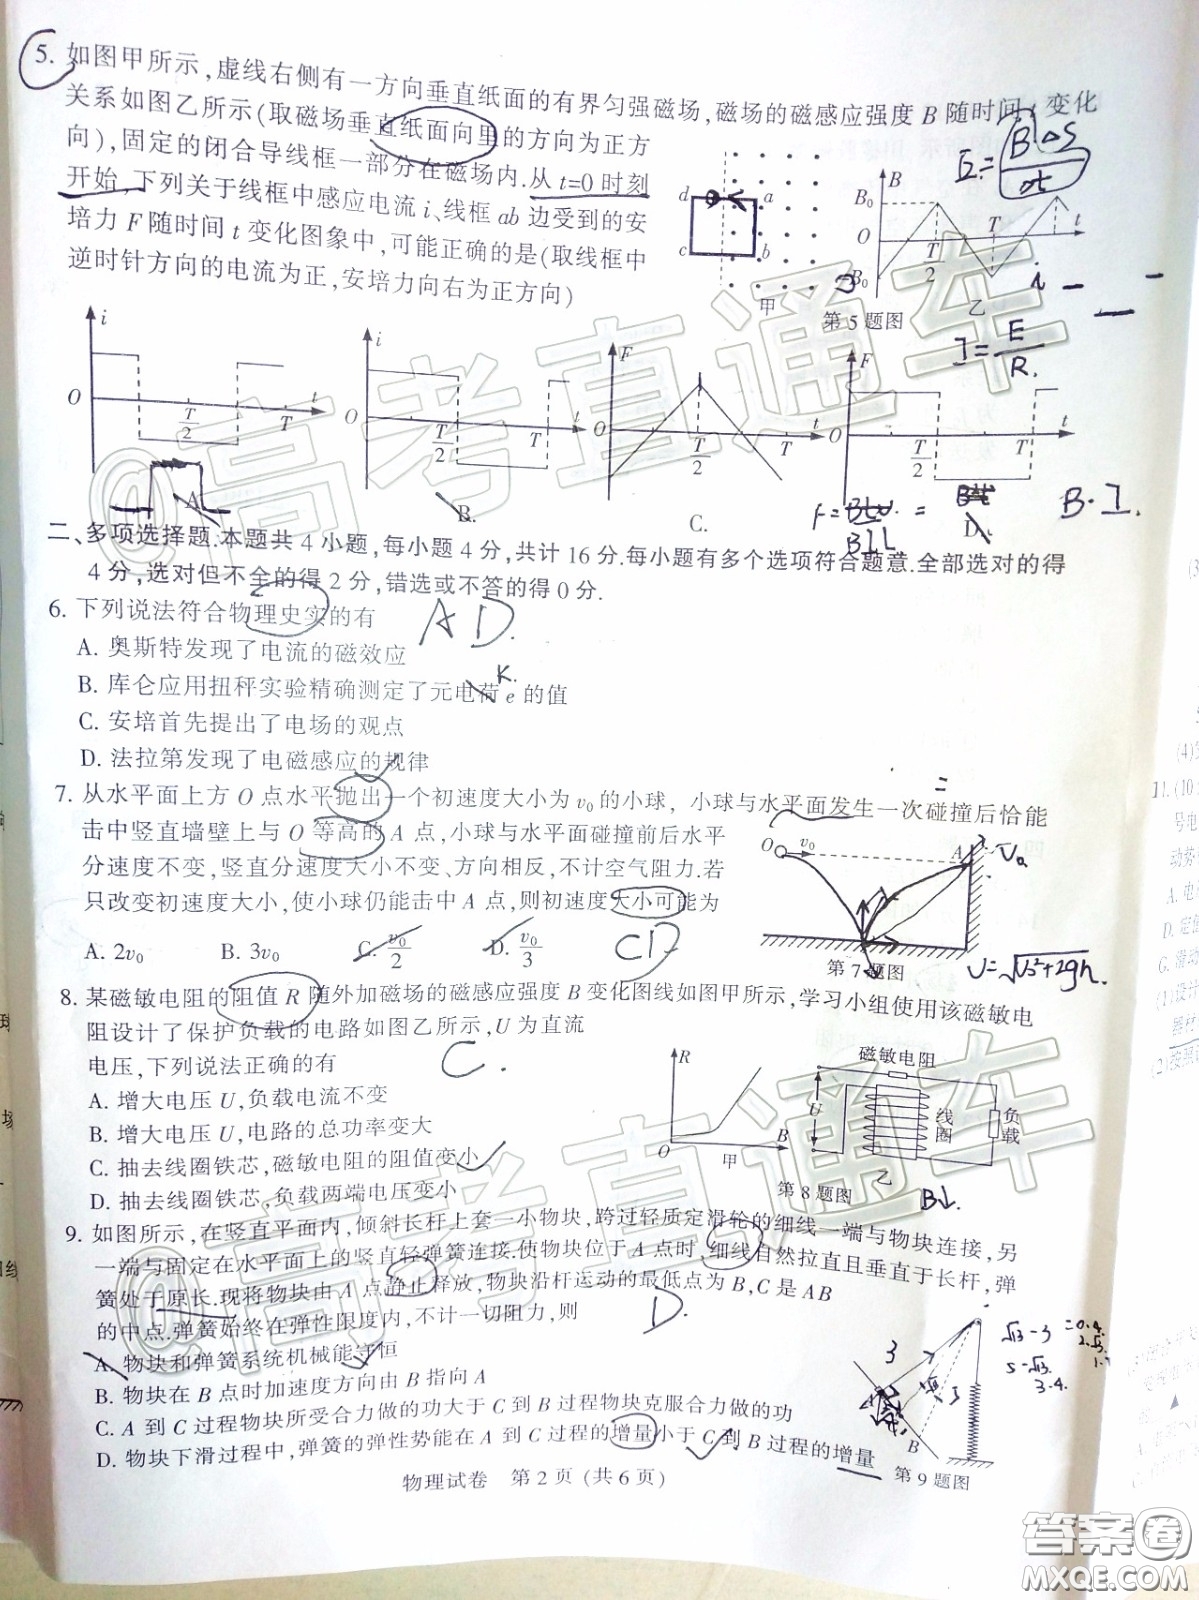 5. 如图甲所示,虚线右侧有一方向垂直纸面的有界匀强磁场,磁场的磁感应强度 B 随时间 t 变化
关系如图乙所示(取磁场垂直纸面向里的方向为正方
向),固定的闭合导线框一部分在磁场内.从 t=0 时刻
开始,下列关于线框中感应电流 i、线框 ab 边受到的安
培力 F 随时间 t 变化图象中,可能正确的是(取线框中
逆时针方向的电流为正,安培力向右为正方向)
d a
c b
甲
B
B₀
O
B₀
T/2
T
t
乙
第5题图
I = E/R
i
O
T/2
T
t
A
i
O
T/2
T
t
B.
F
O
T/2
T
t
C.
F
O
T/2
T
t
D.
BIL
B·I.
二、多项选择题.本题共 4 小题,每小题 4 分,共计 16 分.每小题有多个选项符合题意.全部选对的得
4 分,选对但不全的得 2 分,错选或不答的得 0 分.
6. 下列说法符合物理史实的有
AD.
A. 奥斯特发现了电流的磁效应
B. 库仑应用扭秤实验精确测定了元电荷 e 的值
K.
C. 安培首先提出了电场的观点
D. 法拉第发现了电磁感应的规律
7. 从水平面上方 O 点水平抛出一个初速度大小为 v₀ 的小球，小球与水平面发生一次碰撞后恰能
击中竖直墙壁上与 O 等高的 A 点,小球与水平面碰撞前后水平
分速度不变,竖直分速度大小不变、方向相反,不计空气阻力.若
只改变初速度大小,使小球仍能击中 A 点,则初速度大小可能为
A. 2v₀ B. 3v₀ C. v₀/2 D. v₀/3
CD
O v₀ A
第7题图
8. 某磁敏电阻的阻值 R 随外加磁场的磁感应强度 B 变化图线如图甲所示,学习小组使用该磁敏电
阻设计了保护负载的电路如图乙所示,U 为直流
电压,下列说法正确的有
C.
A. 增大电压 U,负载电流不变
B. 增大电压 U,电路的总功率变大
C. 抽去线圈铁芯,磁敏电阻的阻值变小
D. 抽去线圈铁芯,负载两端电压变小
R
O
B
甲
磁敏电阻
U
线圈
负载
乙
第8题图
B↓
9. 如图所示,在竖直平面内,倾斜长杆上套一小物块,跨过轻质定滑轮的细线一端与物块连接,另
一端与固定在水平面上的竖直轻弹簧连接.使物块位于 A 点时,细线自然拉直且垂直于长杆,弹
簧处于原长.现将物块由 A 点静止释放,物块沿杆运动的最低点为 B,C 是 AB
的中点.弹簧始终在弹性限度内,不计一切阻力,则
D.
A. 物块和弹簧系统机械能守恒
B. 物块在 B 点时加速度方向由 B 指向 A
C. A 到 C 过程物块所受合力做的功大于 C 到 B 过程物块克服合力做的功
D. 物块下滑过程中,弹簧的弹性势能在 A 到 C 过程的增量小于 C 到 B 过程的增量
B
第9题图
物理试卷 第 2 页 (共 6 页)
@高考直通车
@高考直通车
答案卷
MXQE.COM